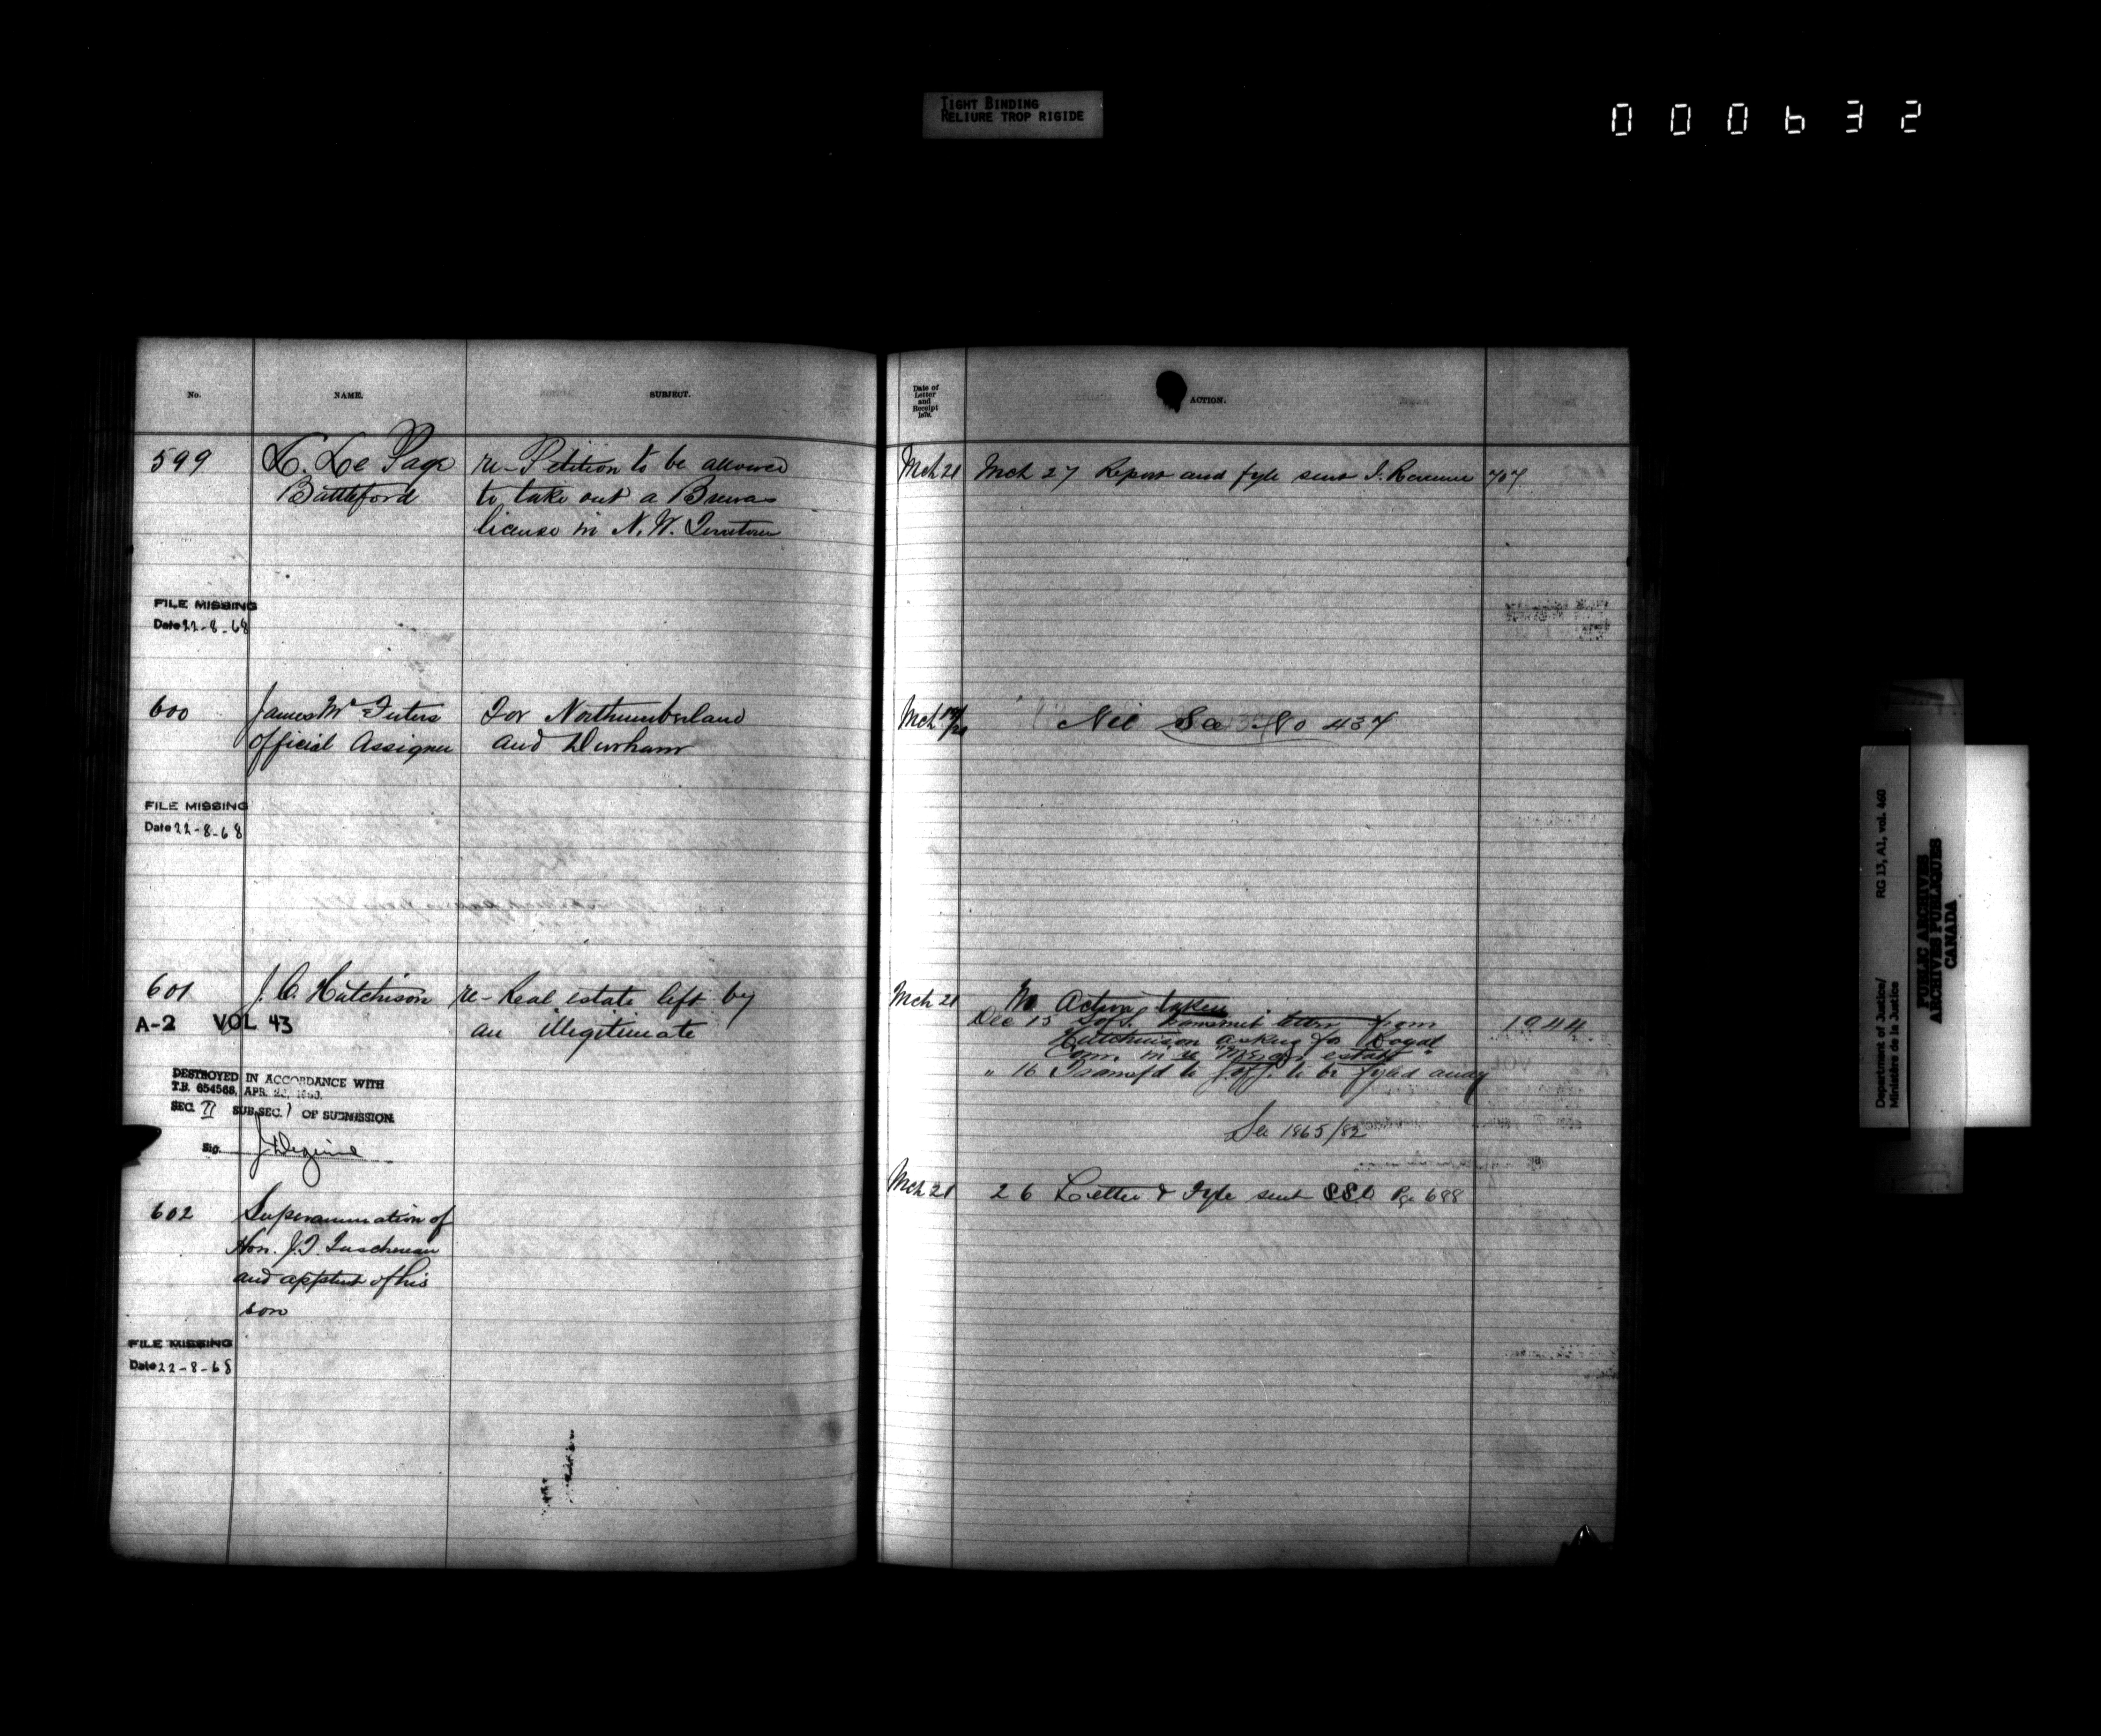 TIGHT BINDING
RELIURE TROP RIGIDE
000632
No.
NAME.
SUBJECT.
599
L. Le Page
Battleford
re- Petition to be allowed
to take out a Brewers
license in N. W.
FILE MISSING
Date 22-8-68
600
James Mc
Official Assignee
For Northumberland
and Durham
FILE MISSING
Date 22-8-68
601
J. C. Hutchison
re- Real estate left by
an illegitimate
A-2 VOL 43
DESTROYED IN ACCORDANCE WITH
T.B. 654568, APR.
SEC. II SUB.SEC. 1 OF SUBMISSION.
Sig.
602
Superannuation of
Hon. J. T. Taschereau
and apptmt of his
son
FILE MISSING
Date 22-8-68
Date of
Letter
and
Receipt
187
ACTION.
Mch 21
Mch 27 Report and fyle sent I. Revenue 707
Mch 19/21
Nil See No 437
Mch 21
No Action taken
Dec 15 transmit letter from 1944
Hutchinson asking for Royal
Com. in re estate "
" 16 Transf'd to to be fyled away
See 1865/82
Mch 21
26 Letter & Fyle sent SSC Pge 688
Department of Justice/
Ministère de la Justice
RG 13, A1, vol. 460
PUBLIC ARCHIVES
ARCHIVES PUBLIQUES
CANADA